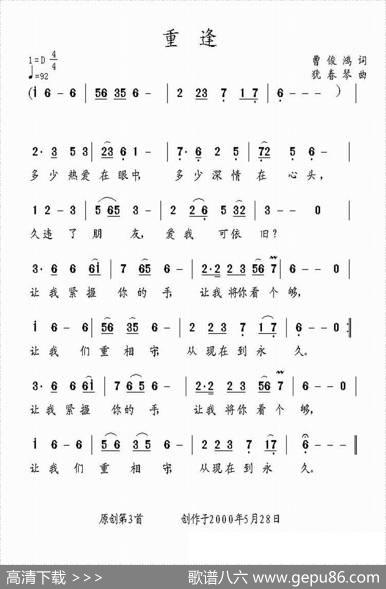 重逢
1=D 4/4
♩=92
曹俊鸿 词
犹春琴 曲
(i 6 - 6 | 56 35 6 - | 2 23 7 17 | 6 - - - )
2· 3 5 3 | 23 6 1 - | 7· 6 2 5 | 72 5 6 - |
多少热爱在眼中, 多少深情在心头,
1 2 - 3 | 5 65 3 - | 2 26 5 32 | 3 - - 0 |
久违了朋友, 爱我可依旧?
3· 6 6 6i | 7 65 6 - | 2·2 2 3 56 7 | 6 - - 0 |
让我紧握你的手, 让我将你看个够,
i 6 - 6 | 56 35 6 - | 2 23 7 17 | 6 - - 0 :‖
让我们重相守, 从现在到永久。
3· 6 6 6i | 7 65 6 - | 2·2 2 3 56 7 | 6 - - 0 |
让我紧握你的手, 让我将你看个够,
i 6 - 6 | 56 35 6 - | 2 23 7 17 | 6 - - 0 ‖
让我们重相守, 从现在到永久。
原创第3首 创作于2000年5月28日
高清下载 >>> 歌谱八六 www.gepu86.com